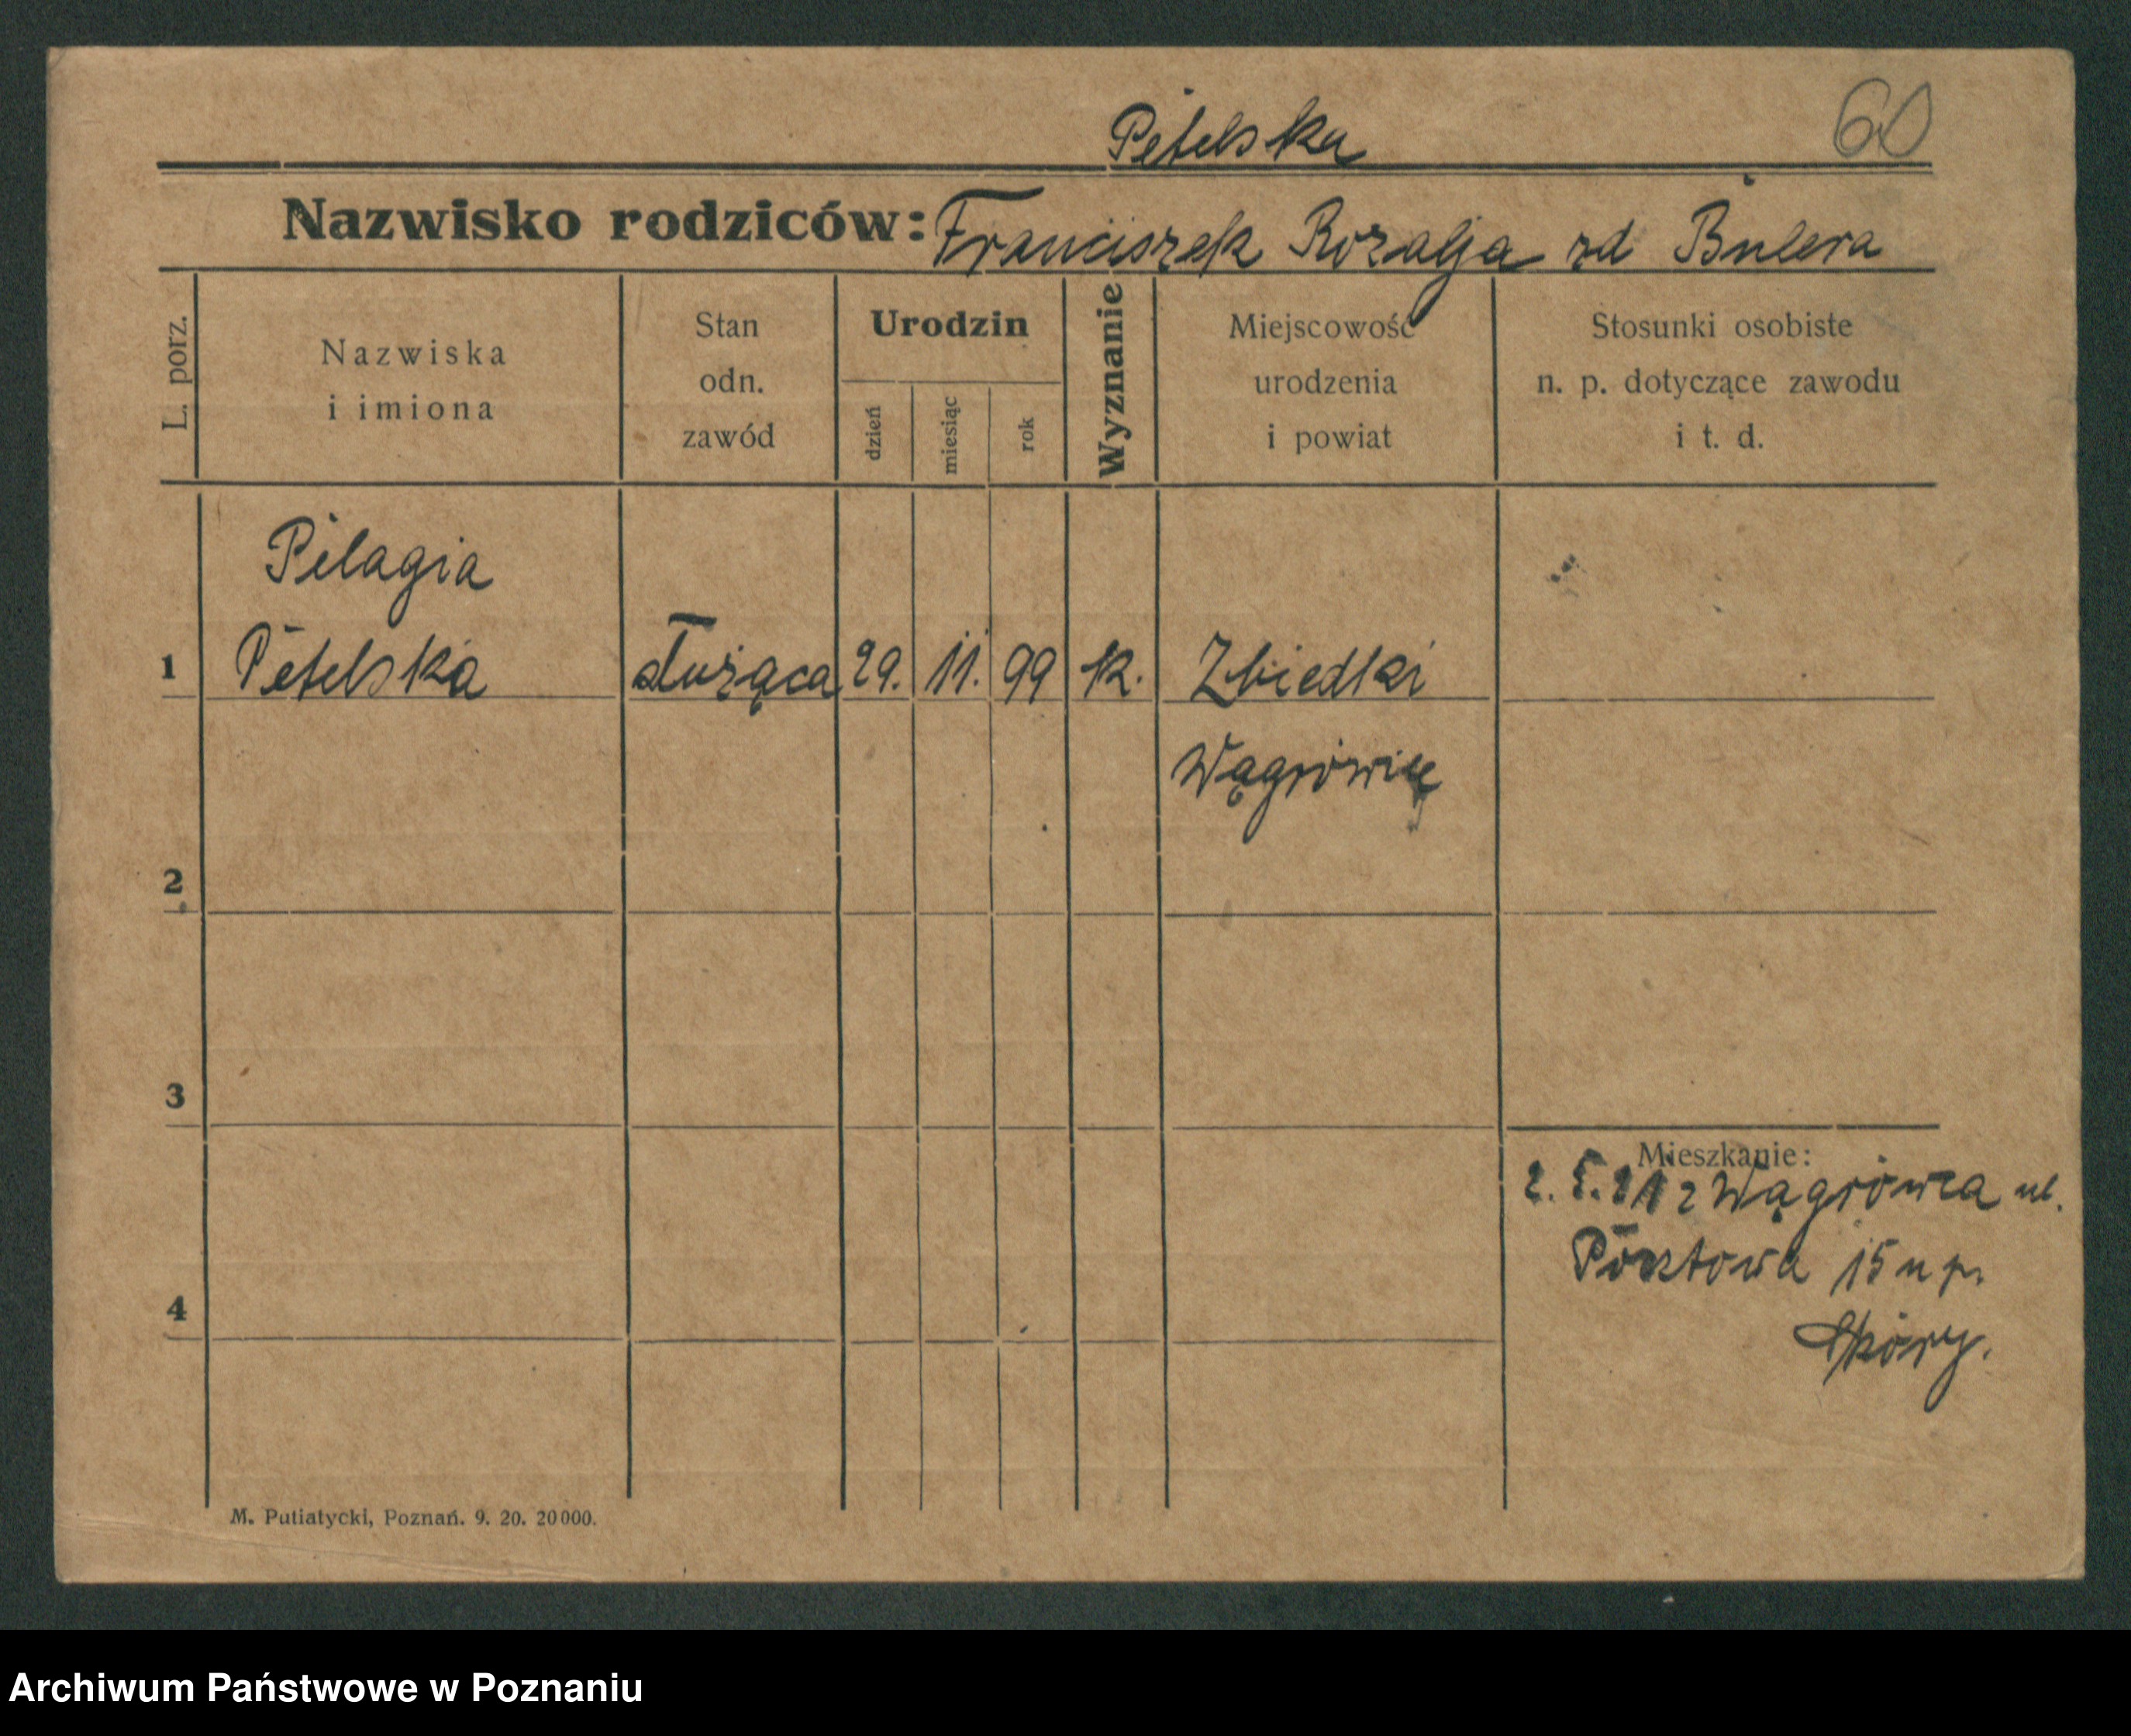 Petelska
60
Nazwisko rodziców: Franciszek Rozalja zd Bulera
L. porz.
Nazwiska
i imiona
Stan
odn.
zawód
Urodzin
dzień
miesiąc
rok
Wyznanie
Miejscowość
urodzenia
i powiat
Stosunki osobiste
n. p. dotyczące zawodu
i t. d.
Pelagia
1 Petelska służąca 29. 11. 99 k. Zbiedki
Wągrówiec
2
3
Mieszkanie:
2. 5. 21 z Wągrówca ul.
Pocztowa 15 u p.
4
Skóry.
M. Putiatycki, Poznań. 9. 20. 20000.
Archiwum Państwowe w Poznaniu